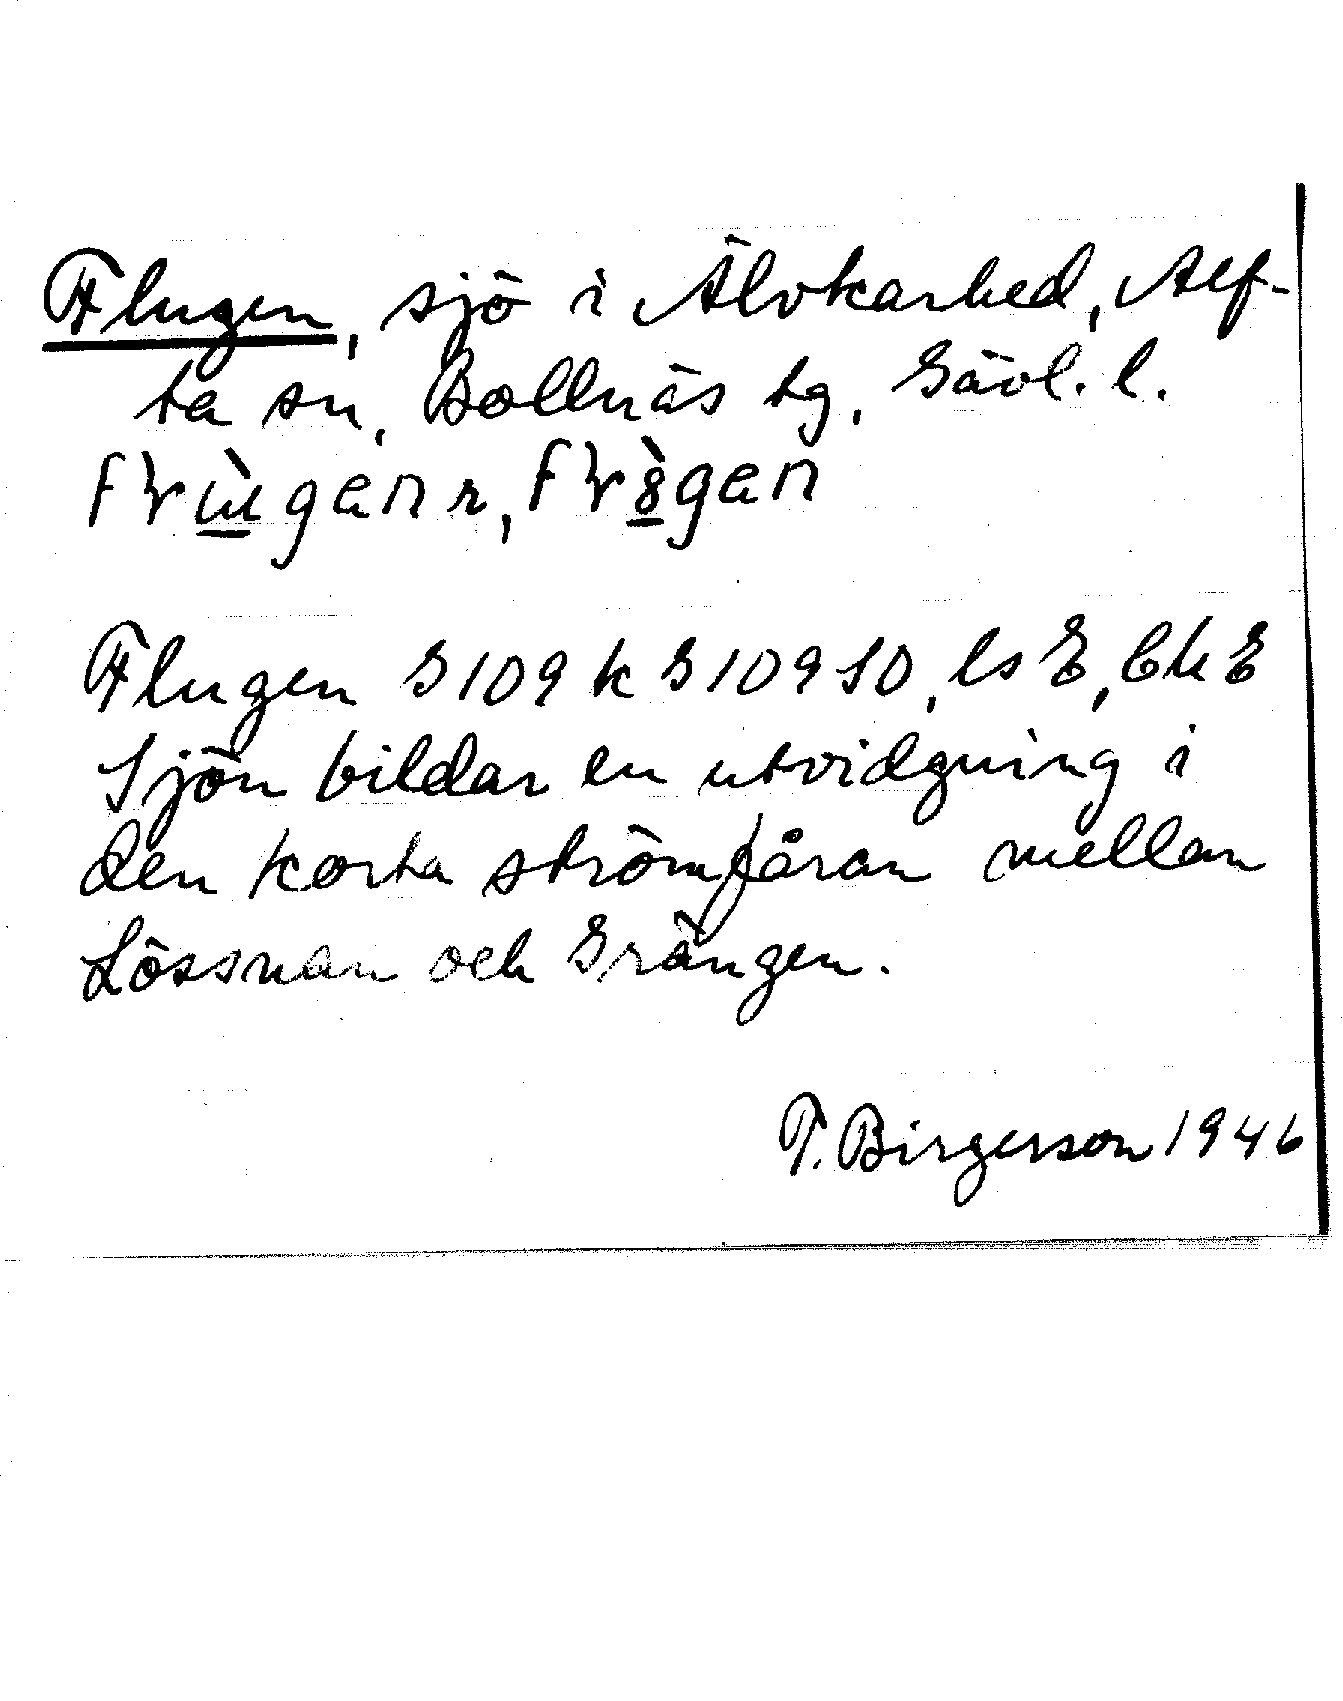 Flugen, sjö i Älvkarhed, Alf-
ta sn, Bollnäs tg, Gävl. l.
Flugen G109 k G109 SO, ls E, Ek E
Sjön bildar en utvidgning i
den korta strömfåran mellan
Lössnan och Grängen.
T. Birgerson 1946